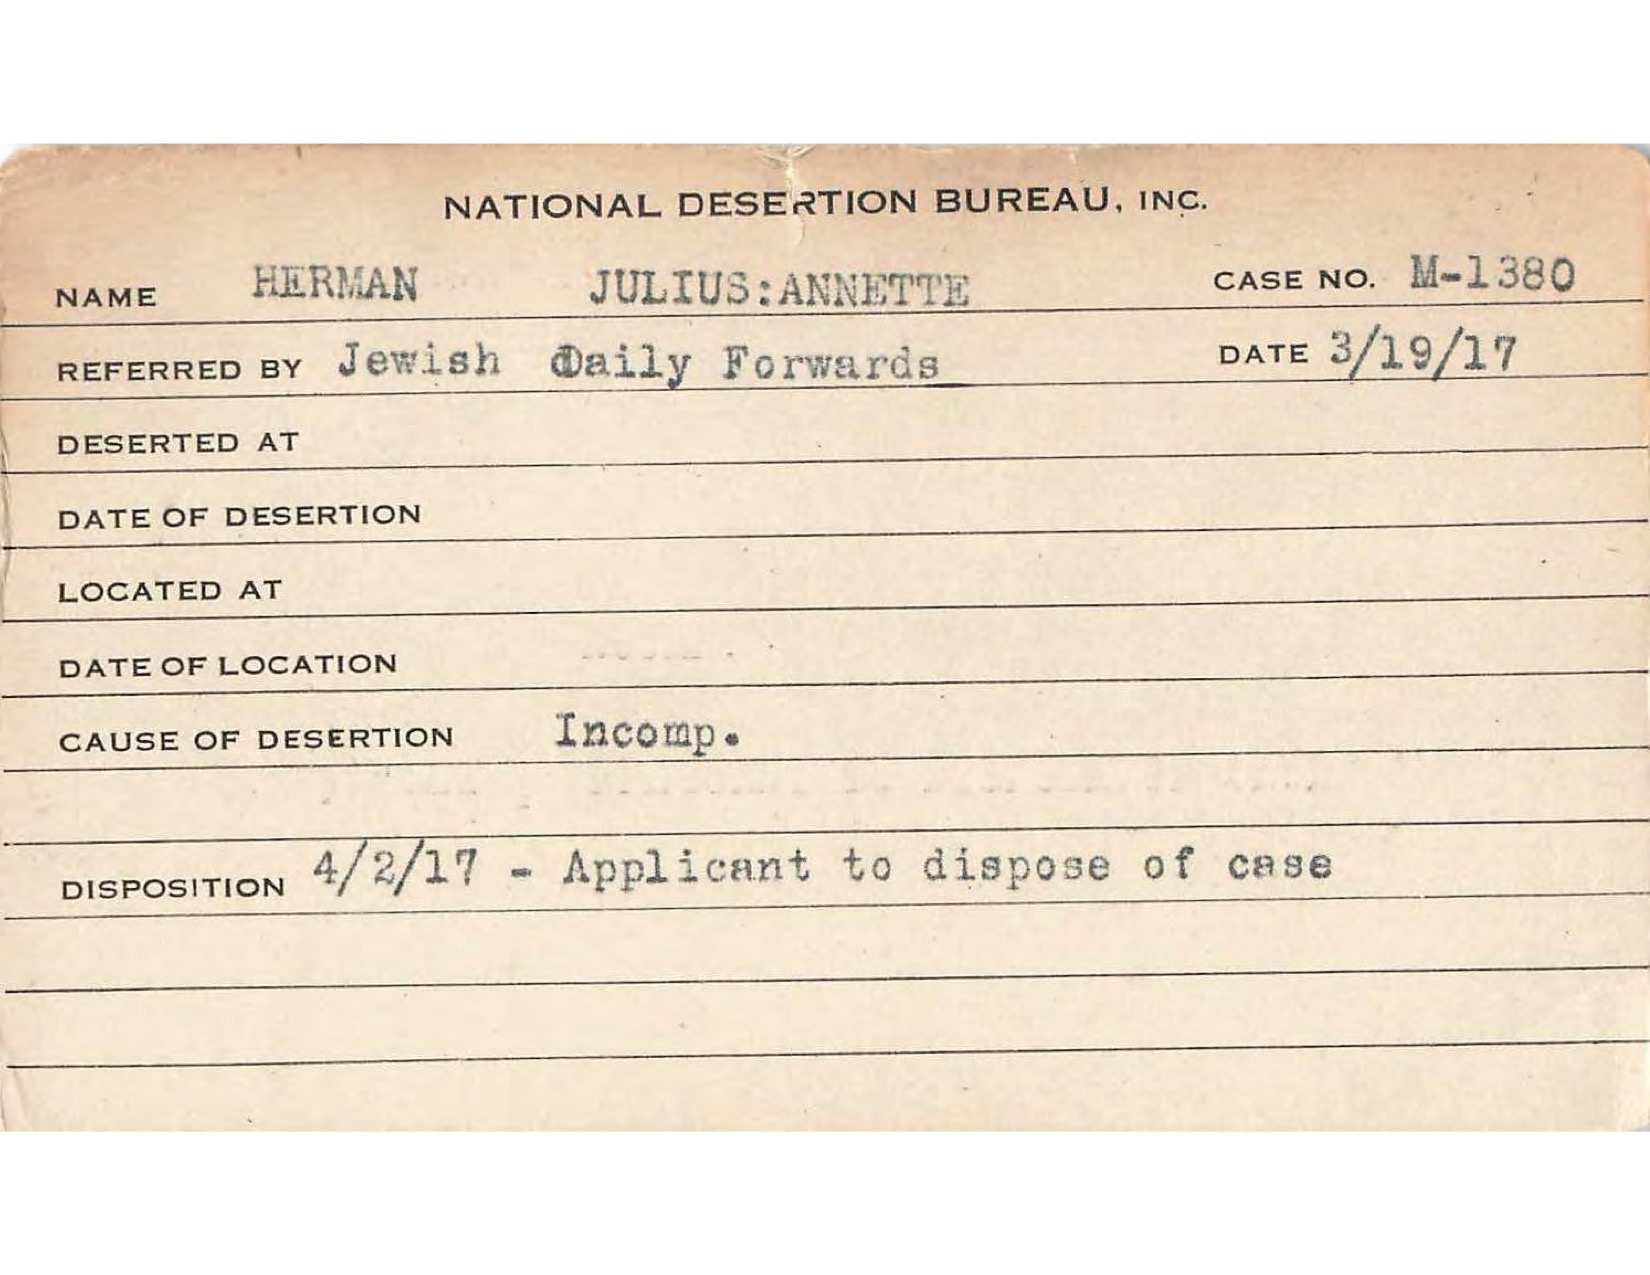 NATIONAL DESERTION BUREAU, INC.
NAME HERMAN JULIUS:ANNETTE CASE NO. M-1380
REFERRED BY Jewish Daily Forwards DATE 3/19/17
DESERTED AT
DATE OF DESERTION
LOCATED AT
DATE OF LOCATION
CAUSE OF DESERTION Incomp.
DISPOSITION 4/2/17 - Applicant to dispose of case